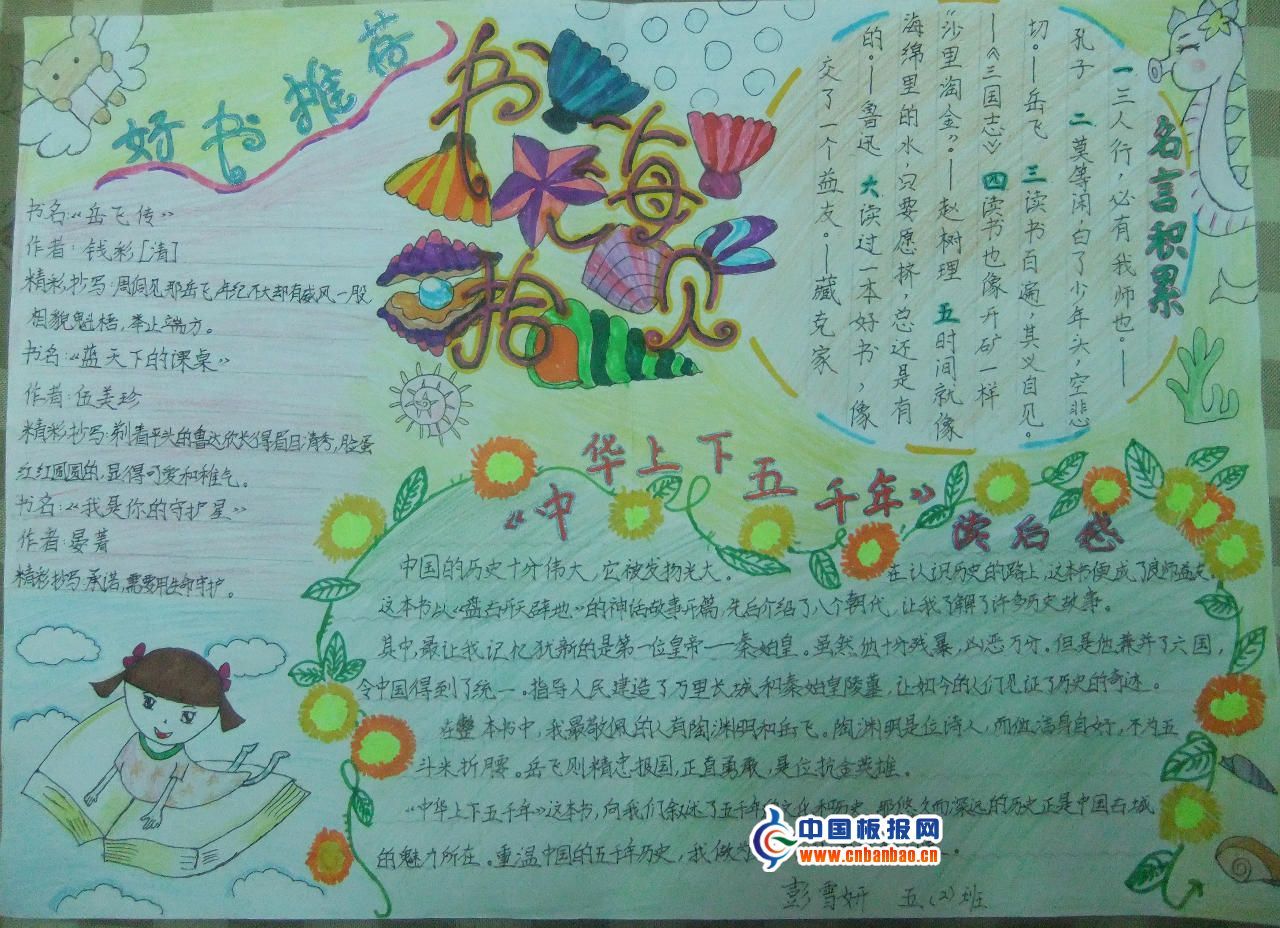 好书推荐
书名:《岳飞传》
作者:钱彩[清]
精彩抄写:周侗见那岳飞年纪不大却有威风一股
相貌魁梧,举止端方。
书名:《蓝天下的课桌》
作者:伍美珍
精彩抄写:剃着平头的鲁达欣长得眉目清秀,脸蛋
红红圆圆的,显得可爱和稚气。
书名:《我是你的守护星》
作者:晏菁
精彩抄写:承诺,需要用生命守护。
书海
拾贝
名言积累
一三人行,必有我师也。——
孔子 二莫等闲白了少年头,空悲
切。——岳飞 三读书百遍,其义自见。
——《三国志》 四读书也像开矿一样
“沙里淘金”。——赵树理 五时间就像
海绵里的水,只要愿挤,总还是有
的。——鲁迅 六读过一本好书,像
交了一个益友。——臧克家
《中华上下五千年》
读后感
中国的历史十分伟大,它被发扬光大。 在认识历史的路上,这本书便成了良师益友。
这本书以《盘古开天辟地》的神话故事开篇,先后介绍了八个朝代,让我了解了许多历史故事。
其中,最让我记忆犹新的是第一位皇帝——秦始皇。虽然他十分残暴,凶恶万分。但是他兼并了六国,
令中国得到了统一。指导人民建造了万里长城和秦始皇陵墓,让如今的人们见证了历史的奇迹。
在整本书中,我最敬佩的人有陶渊明和岳飞。陶渊明是位诗人,而他洁身自好,不为五
斗米折腰。岳飞则精忠报国,正直勇敢,是位抗金英雄。
《中华上下五千年》这本书,向我们叙述了五千年的文化和历史,那悠久而深远的历史正是中国古城
的魅力所在。重温中国的五千年历史,我做为
中国板报网
www.cnbanbao.cn
彭雪妍 五、(2)班